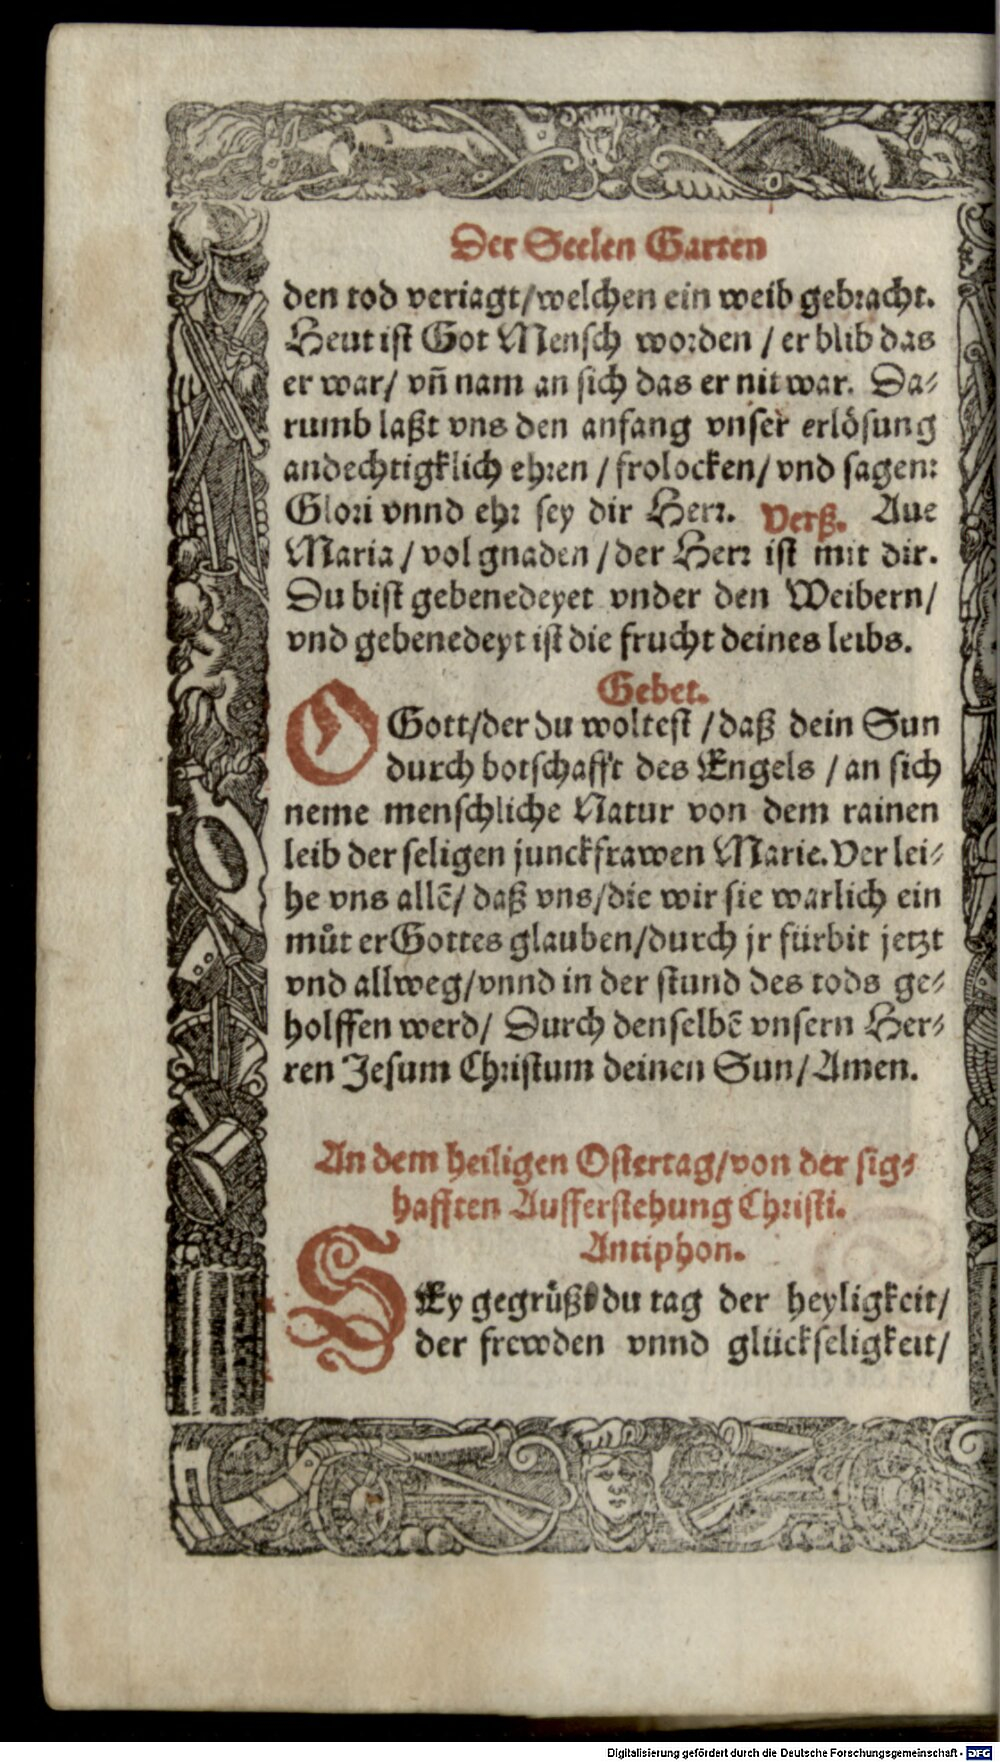 Der Seelen Garten
den tod veriagt/welchen ein weib gebracht.
Heut ist Got Mensch worden / er blib das
er war/ vñ nam an sich das er nit war. Da-
rumb laßt vns den anfang vnser erlösung
andechtigklich ehren / frolocken/ vnd sagen:
Glori vnnd ehr sey dir Herr. Verß. Aue
Maria / vol gnaden / der Herr ist mit dir.
Du bist gebenedeyet vnder den Weibern/
vnd gebenedeyt ist die frucht deines leibs.
Gebet.
O Gott/der du woltest / daß dein Sun
durch botschafft des Engels / an sich
neme menschliche Natur von dem rainen
leib der seligen junckfrawen Marie. Verlei-
he vns allē/ daß vns/die wir sie warlich ein
můter Gottes glauben/durch jr fürbit jetzt
vnd allweg/vnnd in der stund des tods ge-
holffen werd/ Durch denselbē vnsern Her-
ren Jesum Christum deinen Sun/ Amen.
An dem heiligen Ostertag/von der sig-
hafften Aufferstehung Christi.
Antiphon.
SEy gegrüßt du tag der heyligkeit/
der frewden vnnd glückseligkeit/
Digitalisierung gefördert durch die Deutsche Forschungsgemeinschaft - DFG